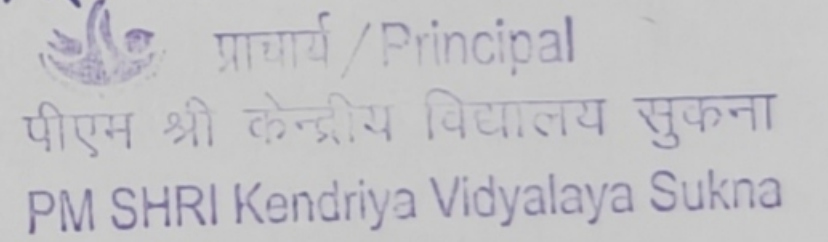 प्राचार्य / Principal
पीएम श्री केन्द्रीय विद्यालय सुकना
PM SHRI Kendriya Vidyalaya Sukna